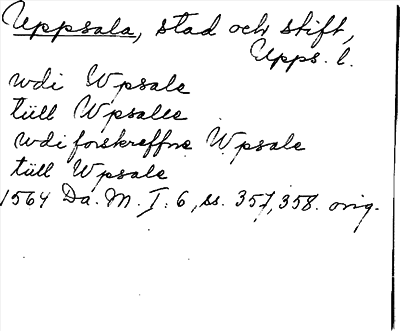 Uppsala, stad och stift,
Upps. l.
wdi Wpsale
tiill Wpsalle
wdi forskreffne Wpsale
tiill Wpsale
1564 Da. M. I: 6, ss. 357, 358. orig.